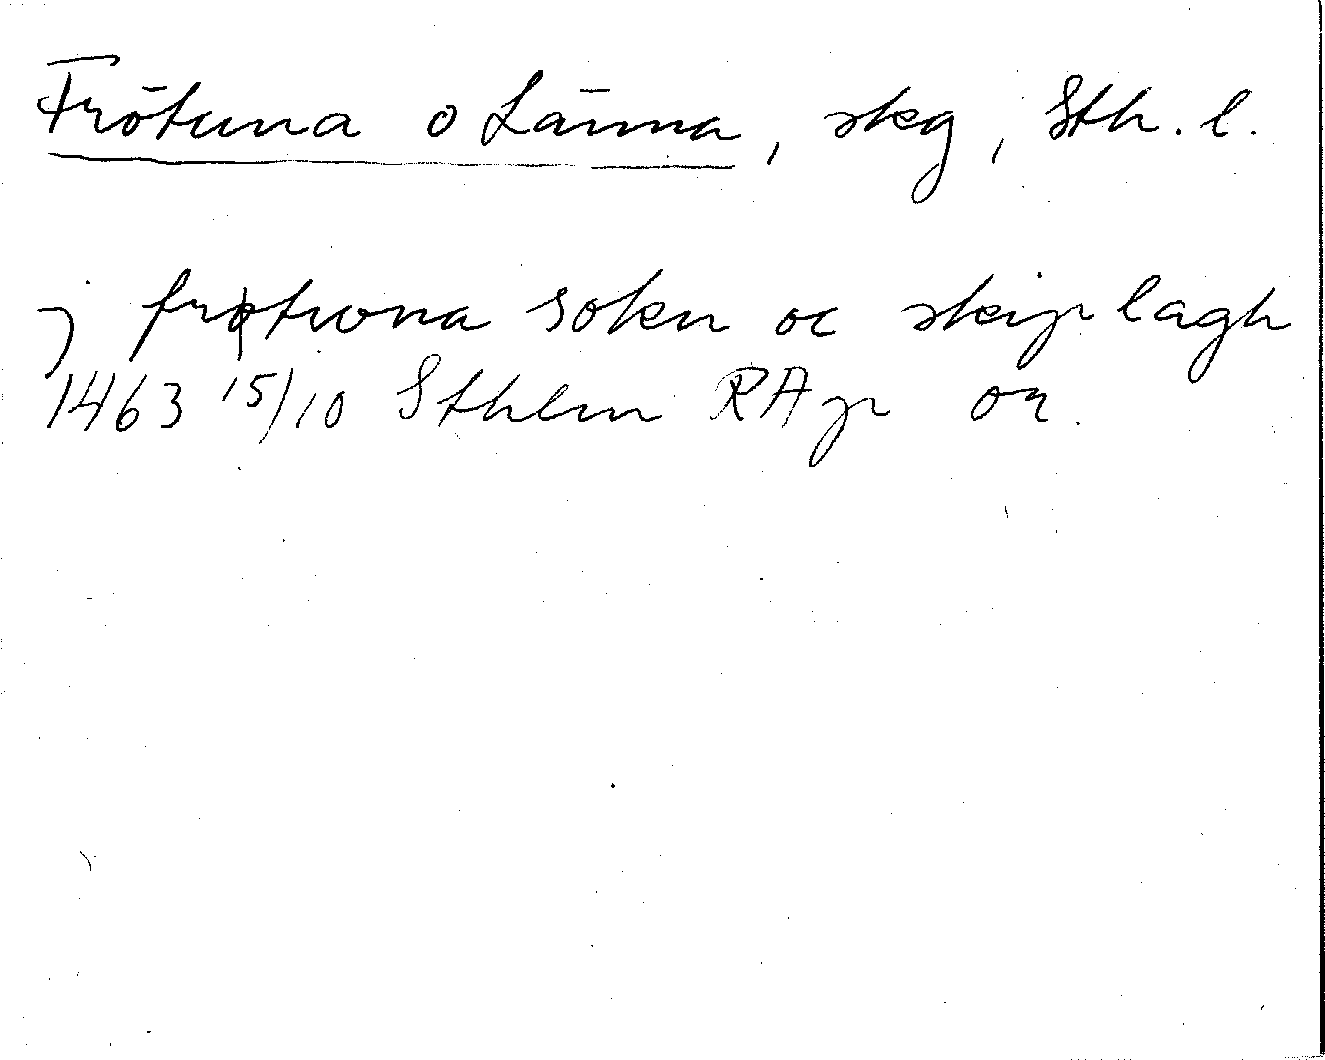 Frötuna o Länna, skg, Sth. l.
j frøtwna sokn oc skiplagh
1463 15/10 Sthlm RAp or.